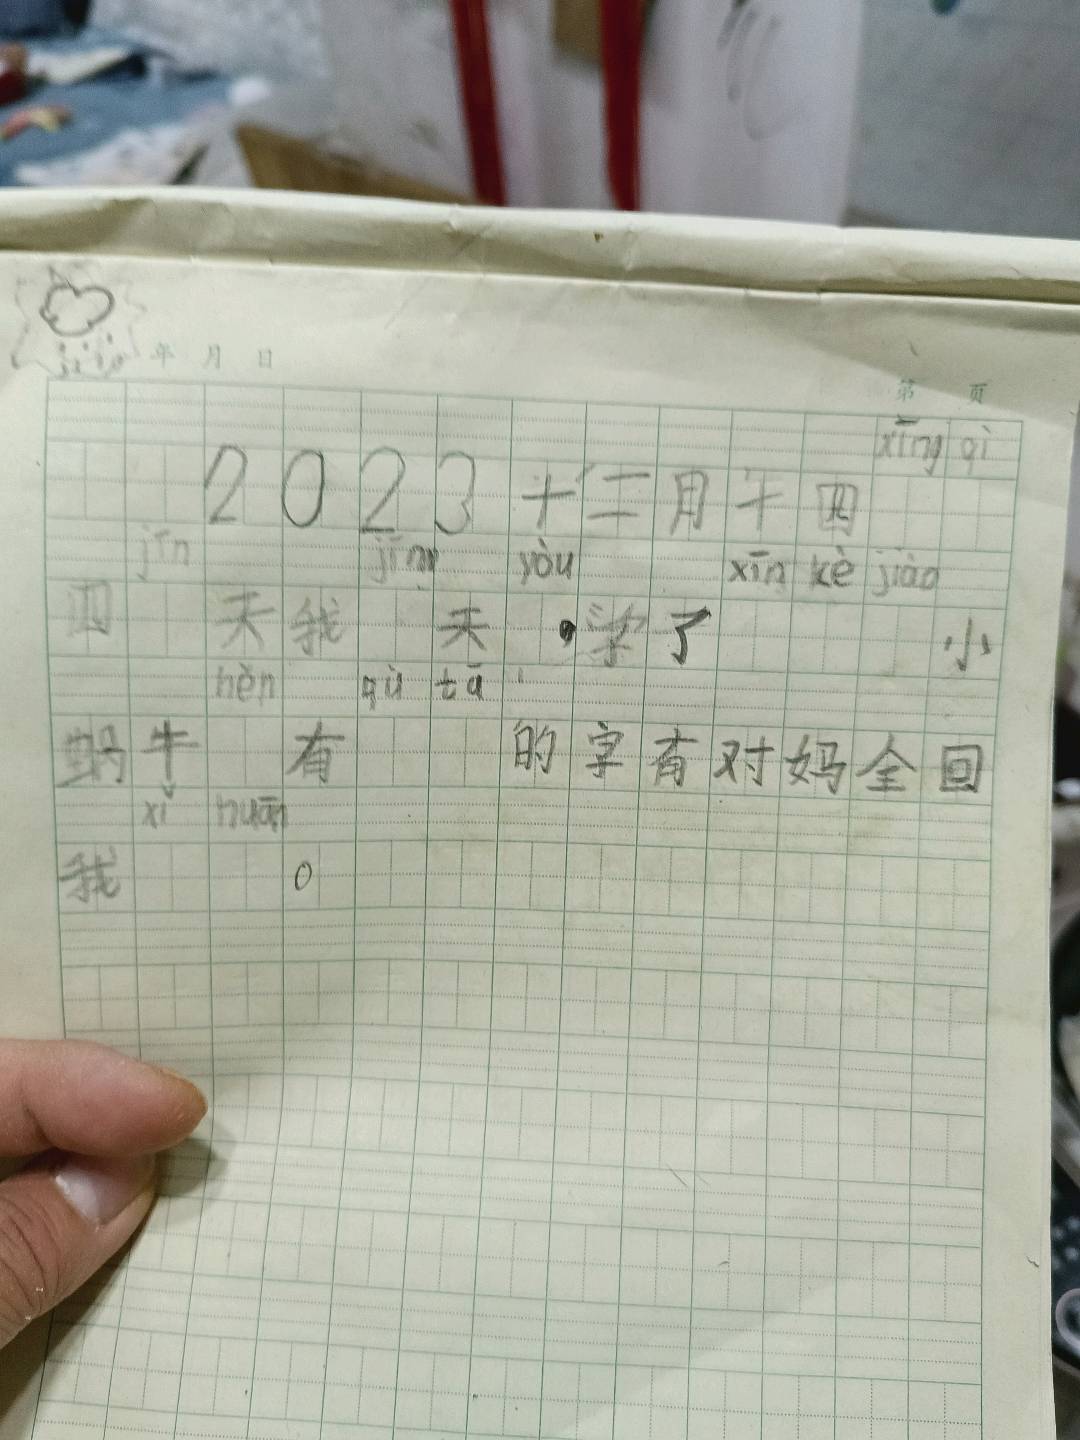 年 月 日
第 页
xīng qì
2023十二月十四
jīn jīn yòu xīn kè jiào
四 天我 天 学了 小
hěn qù tā
蜗牛 有 的字有对妈全回
xǐ huān
我 。